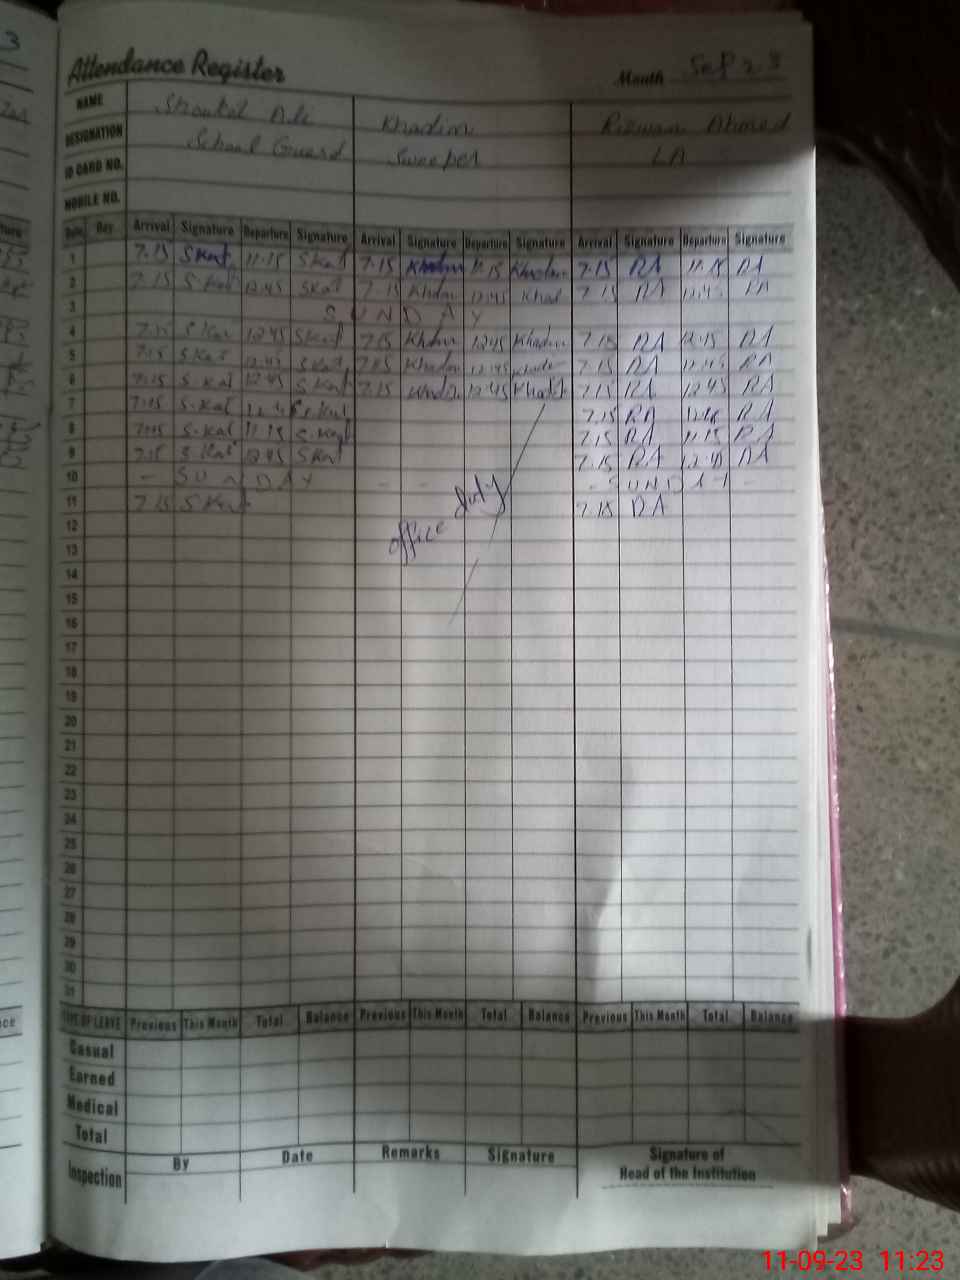 3
Attendance Register
Month Sep 23
NAME Shoukat Ali Khadim Rizwan Ahmed
DESIGNATION School Guard Sweeper LA
ID CARD NO.
MOBILE NO.
Date Day Arrival Signature Departure Signature Arrival Signature Departure Signature Arrival Signature Departure Signature
1 7.15 SKat 11.15 SKat 7.15 Khadim 11.15 Khadim 7.15 RA 11.15 RA
2 7.15 S.Kat 12.45 SKat 7.15 Khdm 12.45 Khad 7.15 RA 12.45 RA
3 SUNDAY
4 7.15 S.Kat 12.45 SKat 7.15 Khdm 12.45 Khadim 7.15 RA 12.45 RA
5 7.15 S.Kat 12.45 S.Kat 7.15 Khadim 12.45 7.15 RA 12.45 RA
6 7.15 S.Kat 12.45 S.Kat 7.15 12.45 Khad 7.15 RA 12.45 RA
7 7.15 S.Kat 12.45 S.Kat 7.15 RA RA
8 7.15 S.Kat 11.15 S.Kat 7.15 RA 11.15 RA
9 7.15 S.Kat 12.45 SKat 7.15 RA RA
10 - SUNDAY - - - SUNDAY -
11 7.15 S.Kat 7.15 RA
office duty
12
13
14
15
16
17
18
19
20
21
22
23
24
25
26
27
28
29
30
31
TYPE OF LEAVE Previous This Month Total Balance Previous This Month Total Balance Previous This Month Total Balance
Casual
Earned
Medical
Total
Inspection By Date Remarks Signature Signature of
Head of the Institution
11-09-23 11:23